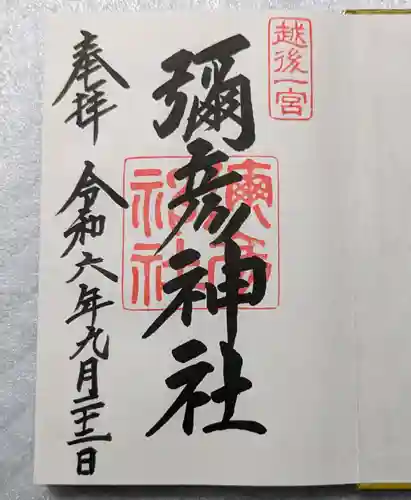 越後一宮
彌彦神社
彌彦神社
奉拝
令和六年九月二十二日